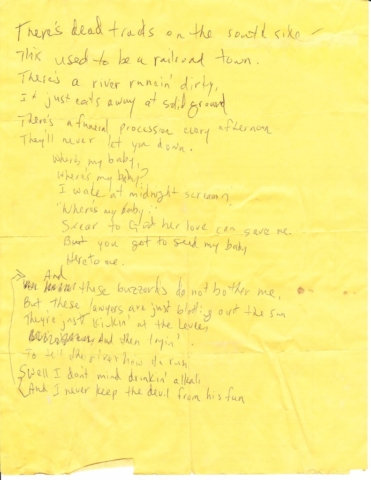 There's dead tracks on the south side
This used to be a railroad town.
There's a river runnin' dirty,
It just eats away at solid ground
There's a funeral procession every afternoon
They'll never let you down.
Where's my baby,
Where's my baby?
I wake at midnight screamin'
"Where's my baby
Swear to God her love can save me.
But you got to send my baby
Here to me.
And
these buzzards do not bother me,
But these lawyers are just blotting out the sun
They're just at the levee
And then tryin'
To tell the river how to run
Well I don't mind drinkin' alkali
And I never keep the devil from his fun